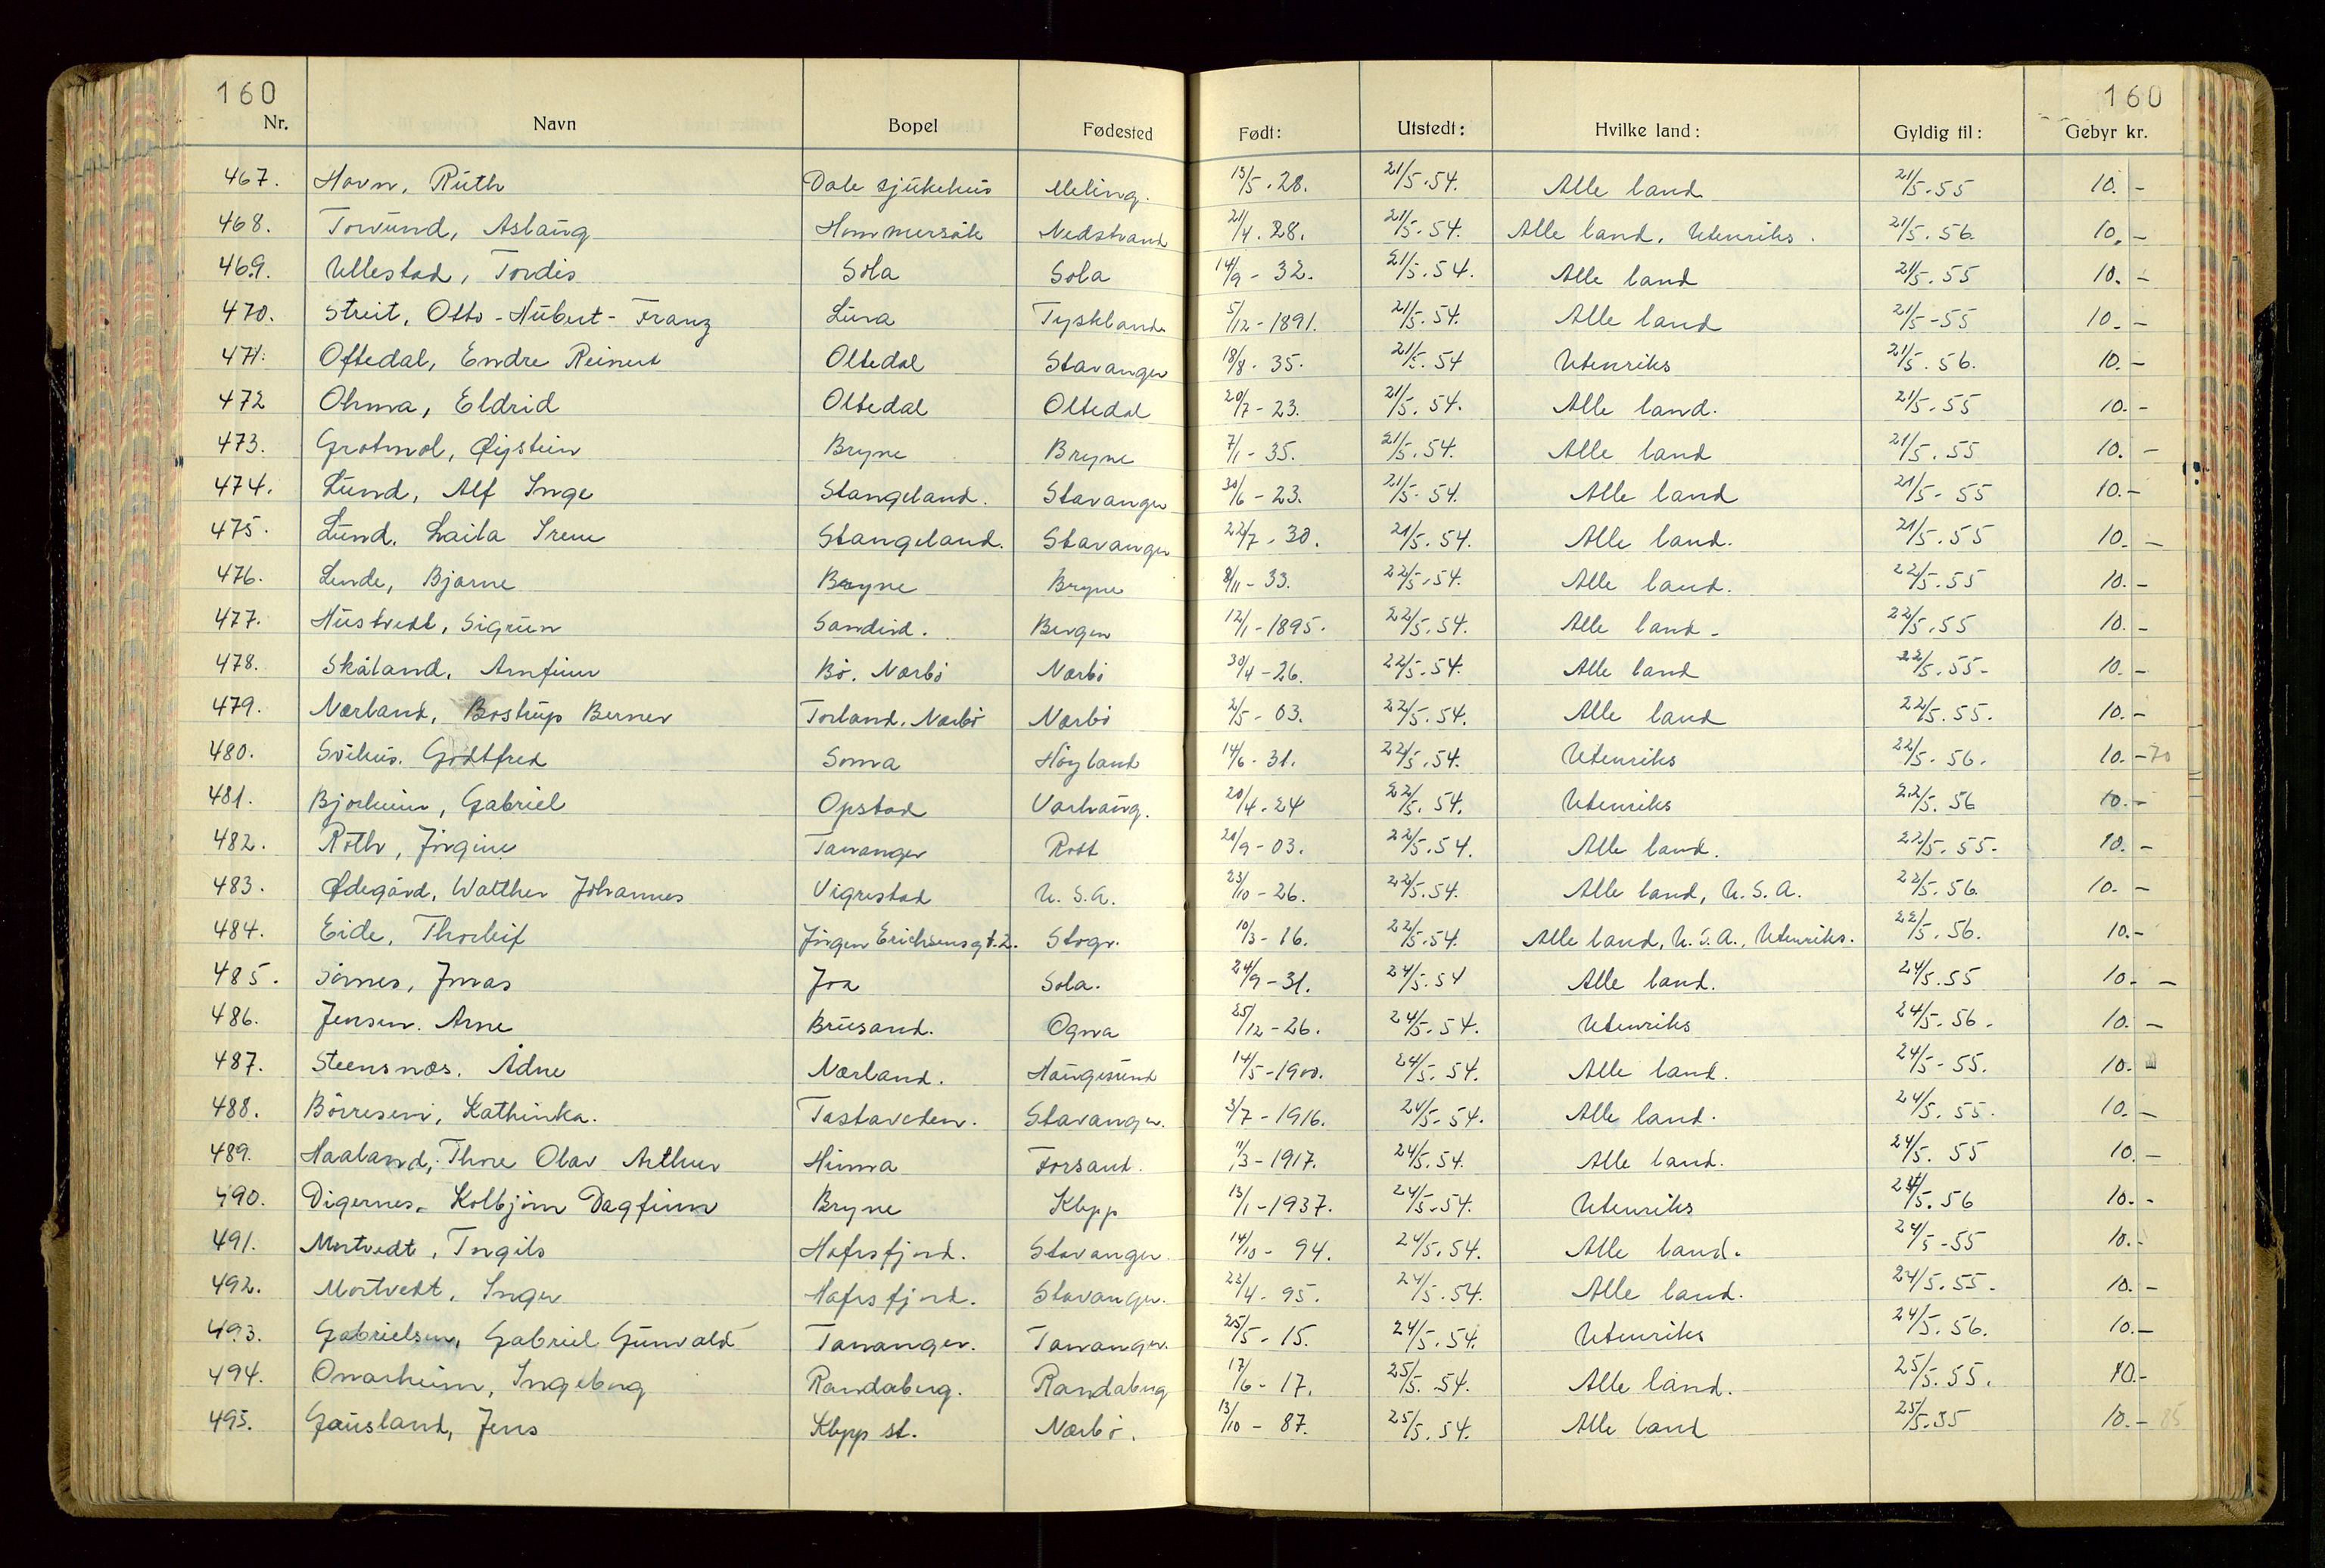 160 160
Nr. Navn Bopel Fødested Født: Utstedt: Hvilke land: Gyldig til: Gebyr kr.
467. Havn, Ruth Dale sjukehus Meling. 13/5.28. 21/5.54. Alle land 21/5.55 10.-
468. Torvund, Aslaug Hommersåk Nedstrand 21/4.28. 21/5.54. Alle land, Utenriks. 21/5.56. 10.-
469. Ullestad, Tordis Sola Sola 14/9-32. 21/5.54. Alle land 21/5.55 10.-
470. Streit, Otto-Hubert-Franz Lura Tyskland 5/12-1891. 21/5.54. Alle land 21/5-55 10.-
471. Oftedal, Endre Reinert Oltedal Stavanger 18/8-35. 21/5.54 Utenriks 21/5.56. 10.-
472 Ohma, Eldrid Oltedal Oltedal 20/7-23. 21/5.54. Alle land. 21/5.55 10.-
473. Grotmol, Øystein Bryne Bryne 7/1-35. 21/5.54. Alle land 21/5.55 10.-
474. Lund, Alf Inge Stangeland. Stavanger 30/6-23. 21/5-54. Alle land 21/5-55 10.-
475. Lund, Laila Irene Stangeland. Stavanger 22/7.30. 21/5.54. Alle land. 21/5.55 10.-
476. Lende, Bjarne Bryne Bryne 8/11-33. 22/5.54. Alle land. 22/5.55 10.-
477. Hustvedt, Sigrun Sandeid. Bergen 12/1-1895. 22/5.54. Alle land. 22/5.55 10.-
478. Skåland, Arnfinn Bø. Nærbø Nærbø 30/4-26. 22/5.54. Alle land 22/5.55- 10.-
479. Nærland, Bostrup Berner Torland. Nærbø Nærbø 2/5-03. 22/5.54. Alle land 22/5.55. 10.-
480. Svihus. Godtfred Soma Høyland 14/6-31. 22/5.54. Utenriks 22/5-56. 10.- 70
481. Bjorheim, Gabriel Opstad Varhaug. 20/4.24 22/5.54. Utenriks 22/5.56 10.-
482. Roth, Jørgine Tananger Rott 20/9-03. 22/5.54. Alle land. 22/5.55. 10.-
483. Ødegård, Walther Johannes Vigrestad U.S.A. 23/10-26. 22/5.54. Alle land, U.S.A. 22/5.56. 10.-
484. Eide, Thorleif Jørgen Erichsensgt.2. Stvgr. 10/3-16. 22/5.54. Alle land, U.S.A., Utenriks. 22/5.56. 10.-
485. Sømes, Jonas Joa Sola. 24/9-31. 24/5.54 Alle land. 24/5.55 10.-
486. Jensen. Arne Brusand. Ogna 25/12-26. 24/5.54. Utenriks 24/5.56. 10.-
487. Steensnæs. Ådne Nærland. Haugesund 14/5-1900. 24/5.54. Alle land. 24/5-55. 10.
488. Børresen, Kathinka. Tastaveden. Stavanger. 3/7-1916. 24/5-54. Alle land. 24/5.55. 10.-
489. Haaland, Thore Olav Arthur Hinna Forsand. 11/3-1917. 24/5.54. Alle land. 24/5.55 10.-
490. Digernes, Kolbjørn Dagfinn Bryne Klepp 13/1-1937. 24/5.54. Utenriks 24/5.56 10.-
491. Mortvedt, Ingils Hafrsfjord. Stavanger. 14/10-94. 24/5.54. Alle land. 24/5-55 10.-
492. Mortvedt, Inger Hafrsfjord. Stavanger. 23/4-95. 24/5.54. Alle land. 24/5.55. 10.-
493. Gabrielsen, Gabriel Gunvald Tananger. Tananger. 25/5-15. 24/5.54. Utenriks 24/5.56. 10.-
494. Omarheim, Ingeborg Randaberg. Randaberg 17/6-17. 25/5.54. Alle land. 25/5.55. 10.-
495. Gausland, Jens Klepp st. Nærbø. 13/10-87. 25/5.54. Alle land 25/5.55 10.- 85